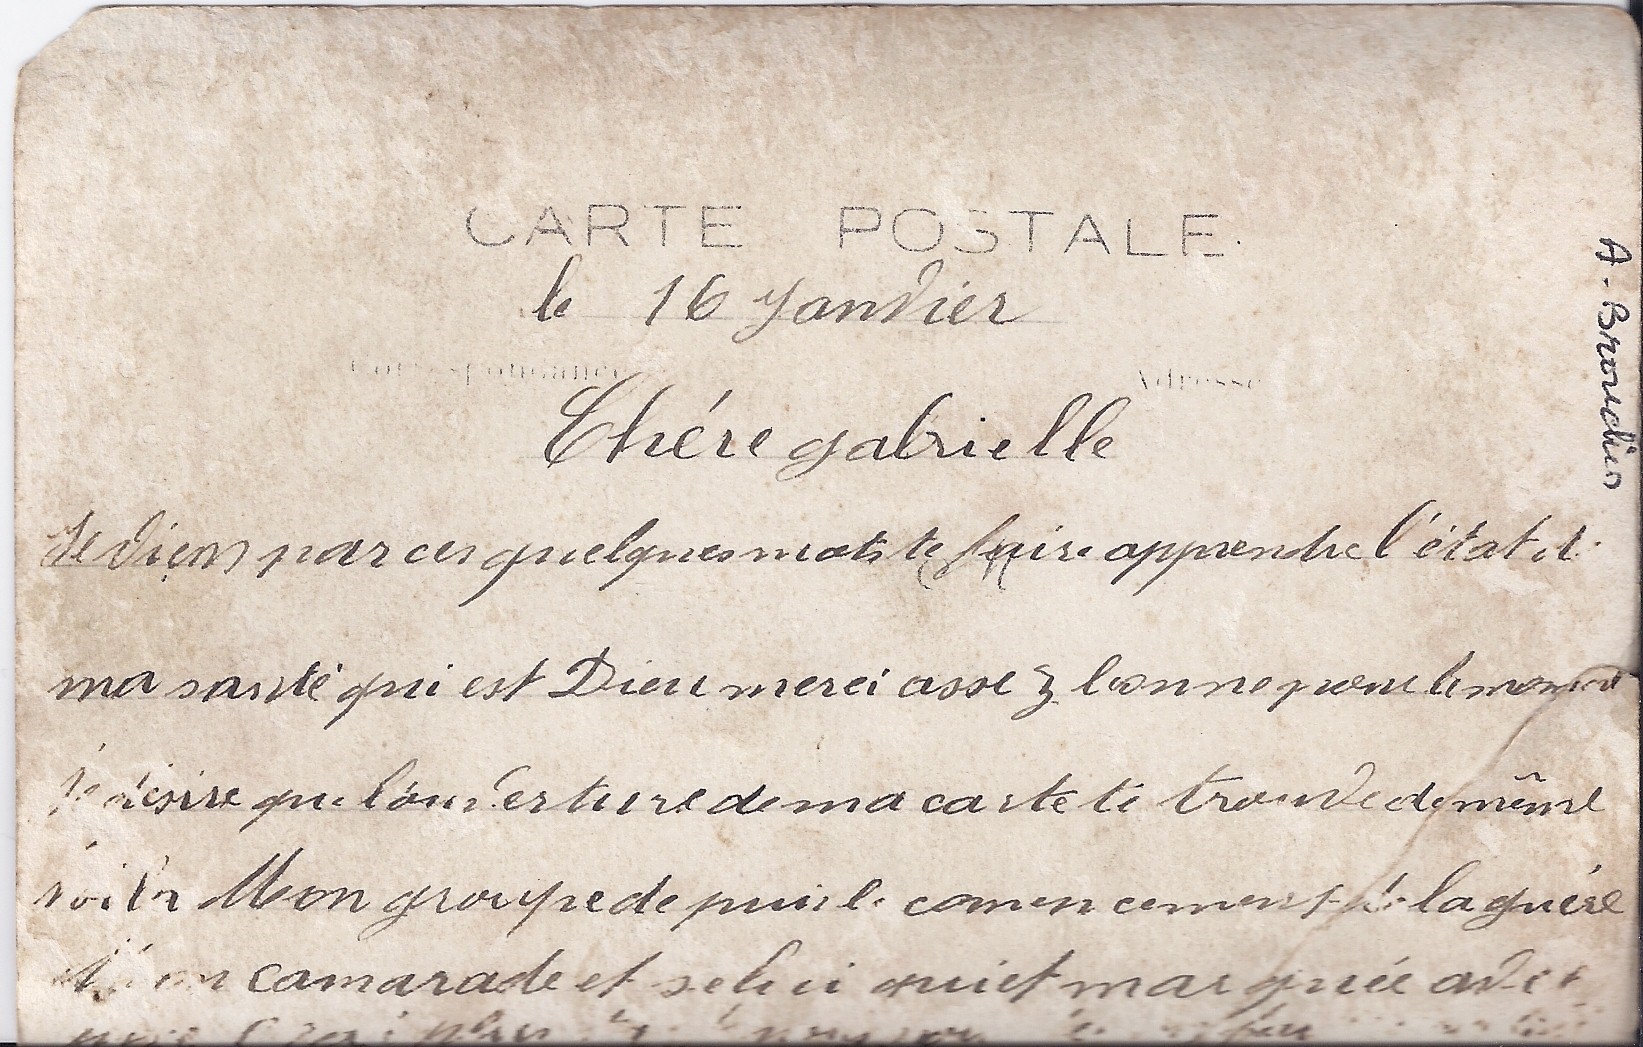 CARTE POSTALE
le 16 Janvier
Correspondance
Adresse
Chére gabrielle
Je viens par ces quelques mots te faire apprendre l'état d
ma santé qui est Dieu merci assez bonne pour le moment
je désire que l'ouverture de ma carte te trouve de même
voila Mon groupe depuis le comencement de la guére
camarade et selui qui et marquée avec
A. Brouchin